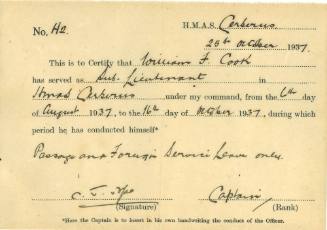 No. H2. H.M.A.S. Cerberus
25th October 1937.
This is to Certify that William F. Cook
has served as Sub. Lieutenant in
Hmas Cerberus under my command, from the 6th
day of August 1937, to the 16th day of October 1937, during which
period he has conducted himself*
Passage and Foreign Service Leave only.
Captain
(Signature) (Rank)
*Here the Captain is to insert in his own handwriting the conduct of the Officer.